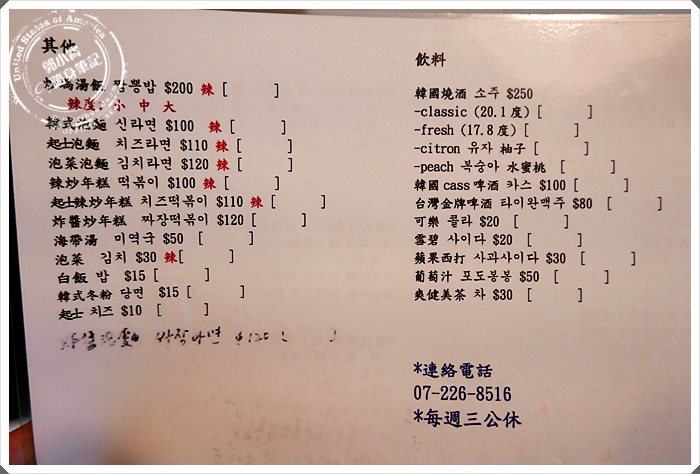 United States of America
其他
炒碼湯飯 짬뽕밥 $200 辣 [ ]
辣度:小 中 大
韓式泡麵 신라면 $100 辣 [ ]
起士泡麵 치즈라면 $110 辣 [ ]
泡菜泡麵 김치라면 $120 辣 [ ]
辣炒年糕 떡볶이 $100 辣 [ ]
起士辣炒年糕 치즈떡볶이 $110 辣 [ ]
炸醬炒年糕 짜장떡볶이 $120 [ ]
海帶湯 미역국 $50 [ ]
泡菜 김치 $30 辣[ ]
白飯 밥 $15 [ ]
韓式冬粉 당면 $15 [ ]
起士 치즈 $10 [ ]
$120 [ ]
飲料
韓國燒酒 소주 $250
-classic (20.1 度) [ ]
-fresh (17.8 度) [ ]
-citron 유자 柚子 [ ]
-peach 복숭아 水蜜桃 [ ]
韓國 cass 啤酒 카스 $100 [ ]
台灣金牌啤酒 타이완맥주 $80 [ ]
可樂 콜라 $20 [ ]
雪碧 사이다 $20 [ ]
蘋果西打 사과사이다 $30 [ ]
葡萄汁 포도봉봉 $50 [ ]
爽健美茶 차 $30 [ ]
*連絡電話
07-226-8516
*每週三公休